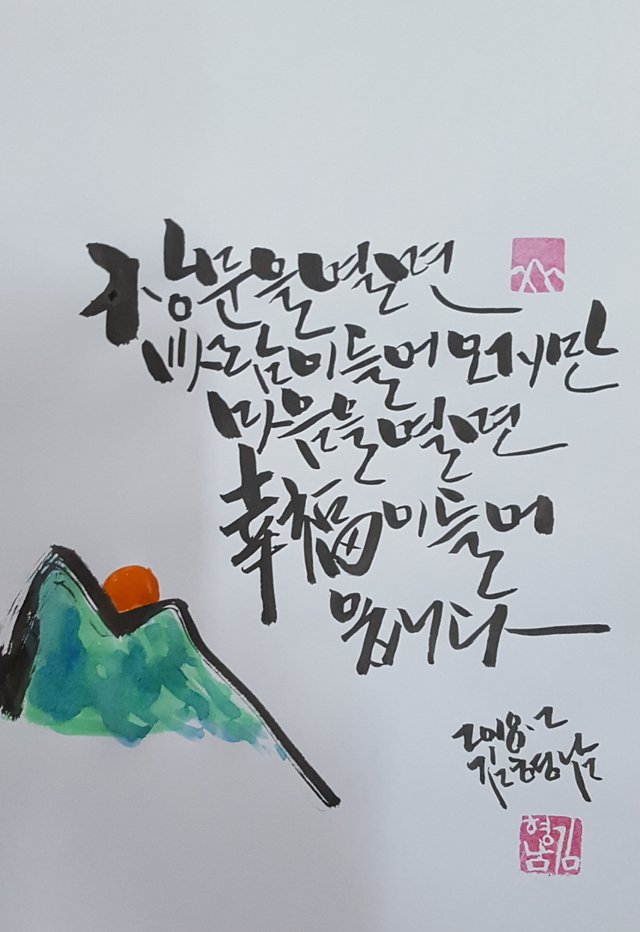 창문을 열면
바람이 들어오지만
마음을 열면
幸福이 들어
옵니다
2018. 2
김형남
김형남